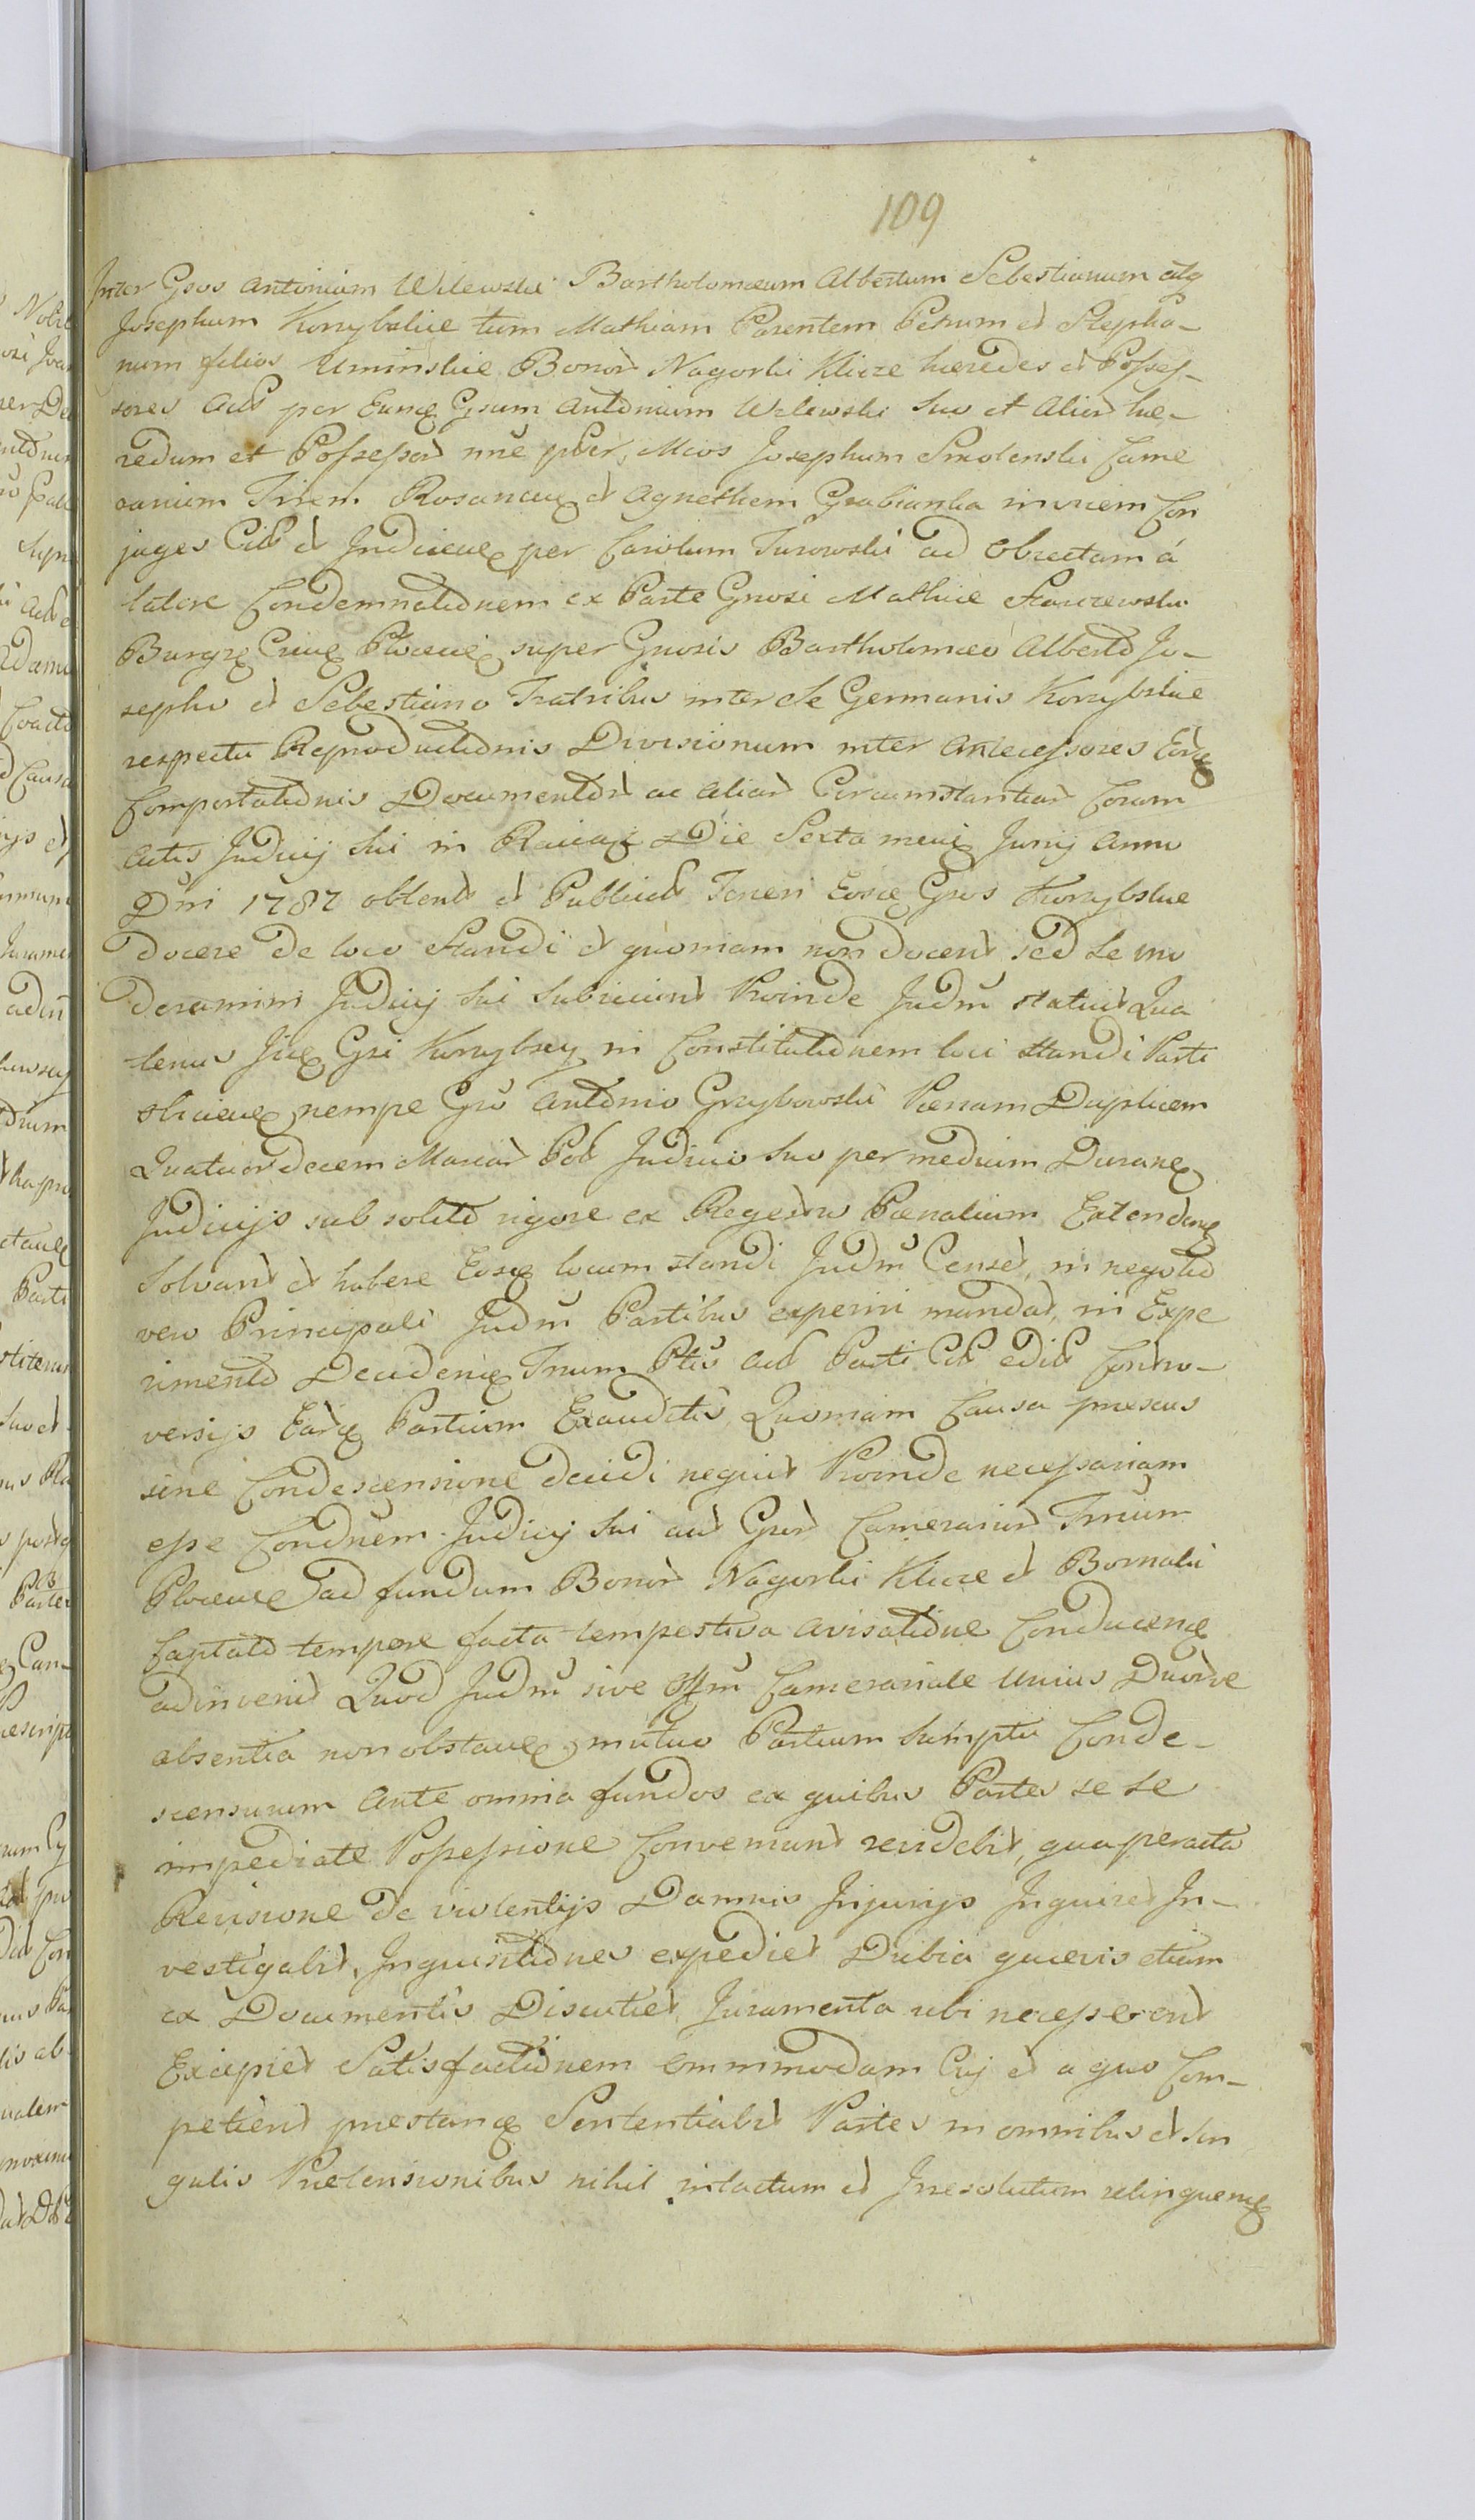 109
Inter Gsos Antonium Wilewski Bartholomæum Albertum Sebestianum atq
Josephum Korzybskie tum Mathiam Parentem Petrum et Stepha-
num filios Uminskie Bonor Nagorki Klicze hæredes et Posses-
sores Act per Eunq Gsum Antonium Wilewski suo et alior hæ-
redum et Possessor nne pter, Mcos Josephum Smolenski Came
rarium Trrem Rosancen et Agnethem Grabianka invicem Con
juges Cit et Judicialr per Carolum Turowski ad obiectam á
latere Condemnationem ex Parte Gnosi Mathiæ Staszewski
Burgr Plocen super Gnosis Bartholomæo Alberto Jo-
sepho et Sebestiano Fratribus inter se Germanis Korzybskie
respectu Reproductionis Divisionum inter Antecessores Eorq
Comportationis Documentor ac aliar Circumstantiar Coram
actis Judicij sui in Raciąż Die Sexta mens Junij Anno
Dni 1787 obtent et Publicat Teneri Eosq Gsos Korzybskie
docere de loco standi et quoniam non docent sed se mo
deramini Judicij sui subiiciunt Proinde Judm statuit Qua
tenus Jiq Gsi Korzybscy in Constitutionem loci standi Parti
nempe Gso Antonio Grzybowski Pænam Duplicem
Quatuordecem Marcar Pol Judicio suo per medium Duran
Judicijs sub solito rigore ex Regestro Pænalium Extenden
Solvant et habere Eosq locum standi Judm Censet, in negotio
vero Principali Judm Partibus experiri mandat, in Expe
rimento Deciden Trnum Ptis Act Parti Cit edict Contro-
versijs Earq Partium Exauditis, Quoniam Causa præsens
sine Condescensione decidi nequit Proinde necessariam
esse Condnem Judicij sui aut Gsor Camerarior Trrium
Plocen ad fundum Bonor Nagorki Klicze et Bornaki
Captato tempore facta tempestiva avisatione Conducen
adinvenit Quod Judm sive Offm Camerariale unius Duorve
absentia non obstan mutuo Partium sumptu Conde-
scensurum ante omnia fundos ex quibus Partes se se
impediatæ Possessione Conveniunt revidebit, qua peracta
Revisione de violentijs Damnis Injurijs Inquiret In-
vestigabit, Inquisitiones expediet Dubia quævis etiam
ex Documentis Discutiet Juramenta ubi necesse erit
Excipiet Satisfactionem ommimodam Cuj et a quo Com-
petierit præstan Sententiabit Partes in omnibus et sin
gulis Prætensionibus nihil intactum et Irresolutum relinquen